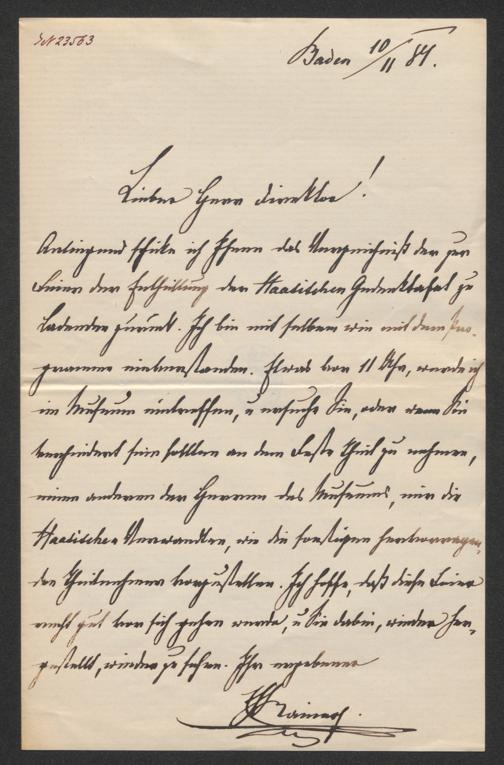 IN 23563
Baden 10/11 84.
Lieber Herr Direktor!
Anliegend schicke ich Ihnen das Verzeichniß der zur
Feier der Enthüllung der Haasischen Gedenktafel zu
Ladenden zurück. Ich bin mit selbem wie mit dem Pro-
gramme einverstanden. Etwas vor 11 Uhr, werde ich
im Museum eintreffen, u ersuche Sie, oder wenn Sie
verhindert sein sollten an dem Feste Theil zu nehmen,
einen anderen der Herren des Museums, mir die
Haasischen Verwandten, wie die sonstigen hervorragen-
den Theilnehmer vorzustellen. Ich hoffe, daß diese Feier
recht gut vor sich gehen werde, u Sie dabei, wieder her-
gestellt, wieder zu sehen. Ihr ergebener
Rainer